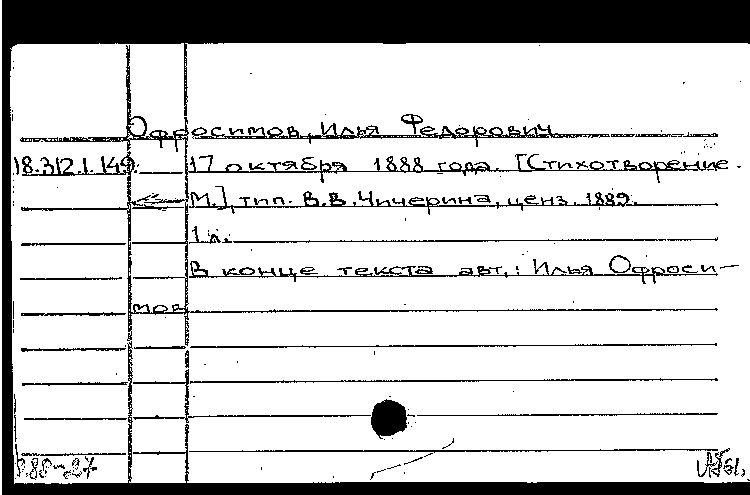 Офросимов, Илья Федорович
18.312.1.149. 17 октября 1888 года. [Стихотворение.
М.], тип. В.В. Чичерина, ценз. 1889.
1 л.
В конце текста авт.: Илья Офроси-
мов